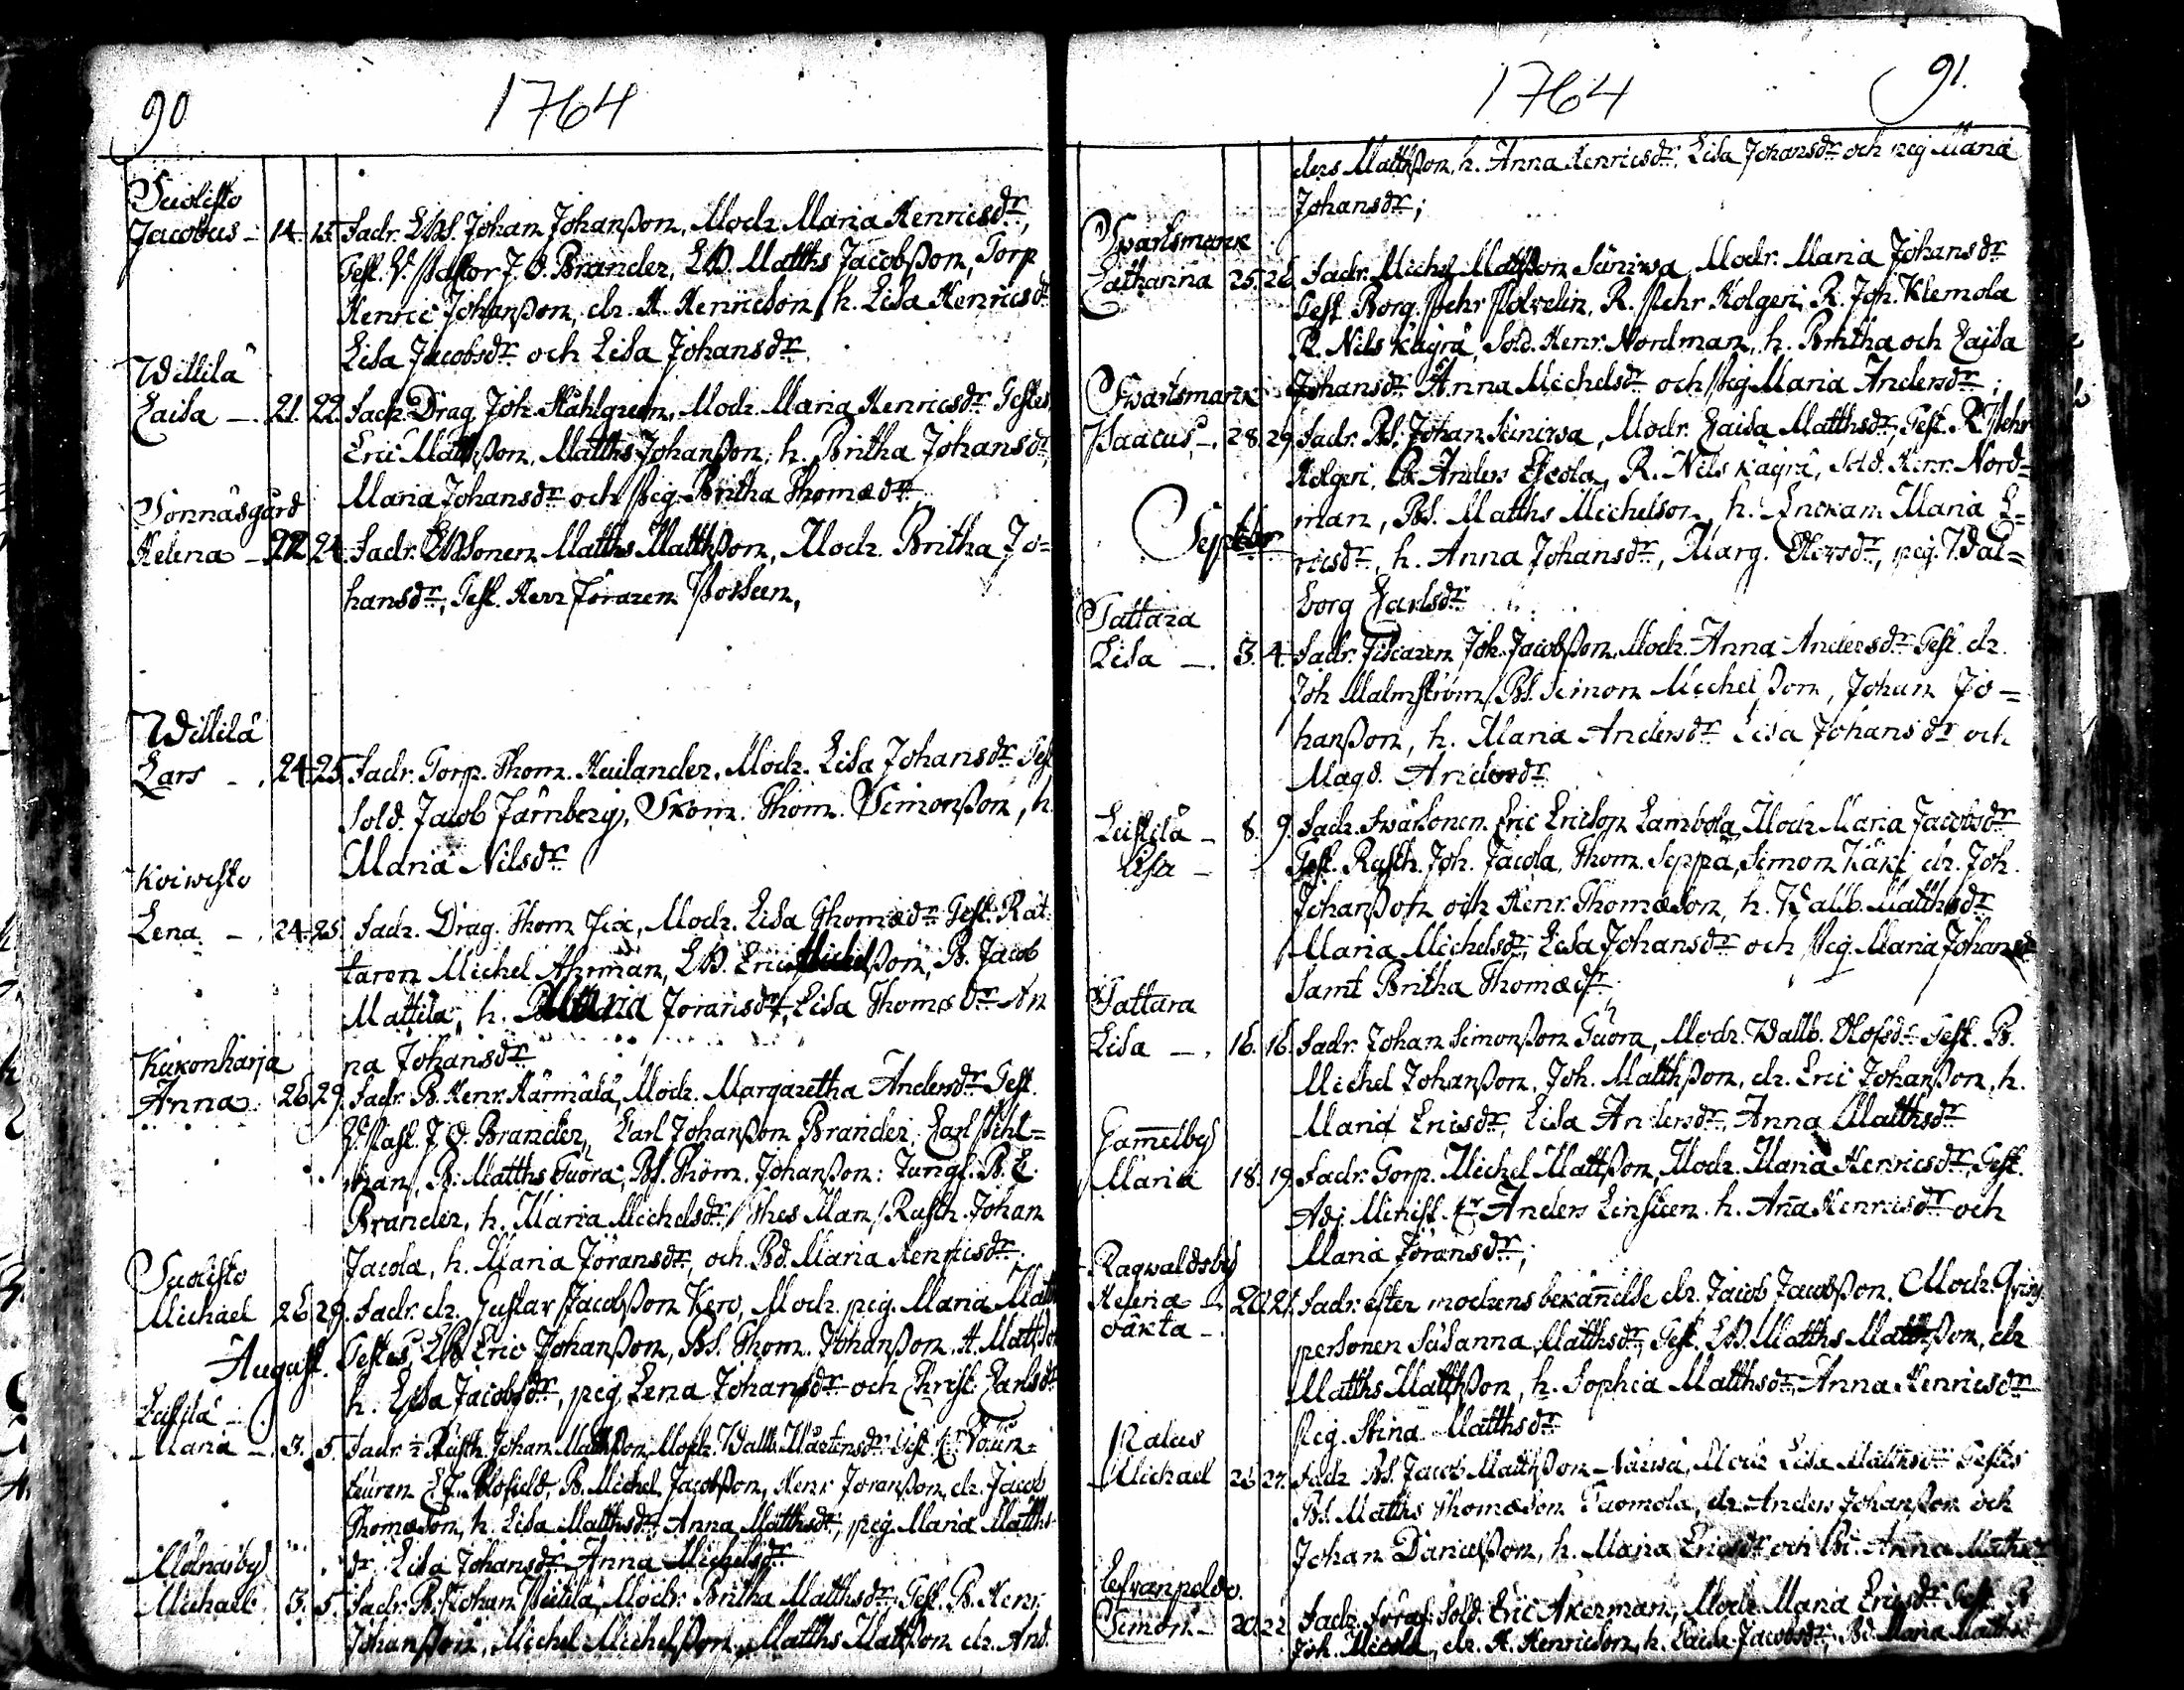 90
1764
Suolisto
Jacobus - 14. 15. Fadr. LBd. Johan Johanßon, Modr. Maria Henricsdr,
Test. V. Pastor J. O. Brander, LB. Matths Jacobßon, Torp
Henric Johanßon, dr. H. Henricson, h. Lisa Henricsdr
Lisa Jacobsdr och Lisa Johansdr.
Willilä
Caisa - 21. 22. Fadr. Drag. Joh. Stahlgren, Modr. Maria Henricsdr Testes
Eric Matthßon, Matths Johanßon, h. Britha Johansdr,
Maria Johansdr och Pig. Britha Thomædr
Sonnäsgård
Helena - 22. 24. Fadr. Matths Matthßon, Modr. Britha Jo=
hansdr, Test. Herr
Willilä
Lars - 24. 25. Fadr. Torp. Thom. Huilander, Modr. Lisa Johansdr Test
Sold. Jacob Järnberg, Skom. Thom. Simonßon, h.
Maria Nilsdr
Koiwisto
Lena - 24. 25. Fadr. Drag. Thom Fix, Modr. Lisa Thomædr Test. Rät=
taren Michel Ahrman, LB. Eric Michelßon, B. Jacob
Mattila, h. Maria Joransdr, Lisa Thomædr An
na Johansdr
Kukonharja
Anna. 26. 29. Fadr. B. Henr. Härmälä, Modr. Margaretha Andersdr Test.
V. Past. J. O. Brander, Carl Johanßon Brander, Carl Pihl=
man, B. Matths Tuora, Bd. Thom. Johanßon: Jungf. B. C.
Brander, h. Maria Michelsdr, Thes Man, Rusth. Johan
Jacola, h. Maria Jöransdr, och Bd. Maria Henricsdr.
Suolisto
Michael 26. 29. Fadr. dr. Gustav Jacobßon Kero, Modr. pig. Maria Matth
Testes, LB Eric Johanßon, Bd. Thom. Johanßon. H. Matthßon
August.
h. Lisa Jacobsdr, pig Lena Johansdr och Christ. Carlsdr
Leistilä -
Maria - 3. 5. Fadr. Rusth. Johan Matthßon, Modr. Walb. Mårtensdr Test.
B. Michel Jacobßon, Henr Joranßon, dr. Jacob
Thomæson, h. Lisa Matthsdr, Anna Matthsdr, pig. Maria Matths
dr Lisa Johansdr Anna Michelsdr
Molnarby
Michael. 3. 5. Fadr. B. Johan Pietilä, Modr. Britha Matthsdr, Test. B. Henr.
Johanßon, Michel Michelßon, Matths Mattßon dr. And.
1764
91.
ders Matthßon, h. Anna Henricsdr, Lisa Johansdr och pig Maria
Johansdr;
Swartsmark
Catharina 25. 26. Fadr. Michel Matthßon Suniwa, Modr. Maria Johansdr
Test. Borg. Pehr Polvelin, R. Pehr Holgeri, R. Joh. Klemola
R. Nils Kägrä, Sold. Henr. Nordman, h. Britha och Caisa
Johansdr Anna Michelsdr och Pig Maria Andersdr;
Swartsmark
Isaacus - 28. 29. Fadr. Bd. Johan Suniwa, Modr. Caisa Matthsdr, Test. R. Pehr
Holgeri, R. Anders Eskola, R. Nils Kägrä, Sold. Henr. Nord=
man, Bd. Matths Michelson, h. Enckan Maria E=
Septebr
ricsdr, h. Anna Johansdr, Marg. Olofsdr, pig. Wal=
borg Carlsdr
Tattara
Lisa - 3. 4. Fadr. Fiscaren Joh. Jacobßon, Modr. Anna Andersdr Test. dr.
Joh Malmström, Bd. Simon Michelßon, Johan Jo=
hanßon, h. Maria Andersdr Lisa Johansdr och
Magd. Andersdr
Leistilä - 8. 9. Fadr. Eric Ericson Lambola, Modr Maria Jacobsdr
Lisa - Test. Rusth. Joh. Jacola, Thom. Seppä, Simon Käki dr. Joh.
Johanßon och Henr. Thomæson, h. Wallb. Matthsdr
Maria Michelsdr, Lisa Johansdr och Pig. Maria Johansdr
Samt Britha Thomædr;
Tattara
Lisa - 16. 16. Fadr. Johan Simonßon Tuora, Modr. Wallb. Olofsdr Test. B.
Michel Johanßon, Joh. Matthßon, dr. Eric Johanßon, h.
Maria Ericsdr, Lisa Andersdr, Anna Matthsdr
Gam̄elby
Maria 18. 19. Fadr. Torp. Michel Mattßon, Modr. Maria Henricsdr, Test.
Adj. Minist. Hr Anders Lensteen. h. An̄a Henricsdr och
Maria Jöransdr;
Ragwaldsby
Helena - 20. 21. Fadr. efter modrens bekän̄else dr. Jacob Jacobßon. Modr. Qvins
oäkta -. personen Susanna Matthsdr, Test. LB. Matths Matthßon, dr
Matths Matthßon, h. Sophia Matthsdr, Anna Henricsdr
Pig. Stina Matthsdr
Palus
Michael 26. 27. Fadr Bd. Jacob Matthßon Modr Lisa Matthsdr Testes
Bd. Matths Thomæson Tuomola, dr Anders Johanßon och
Johan Danielßon, h. Maria Ericsdr och Anna Mathsdr
Lefvanpeldo.
Simon - 20. 22. Fadr. Sold. Eric Åkerman, Modr Maria Ericsdr Test. B
Joh. dr. H. Henricson, h. Caisa Jacobsdr, Bd. Maria Matths